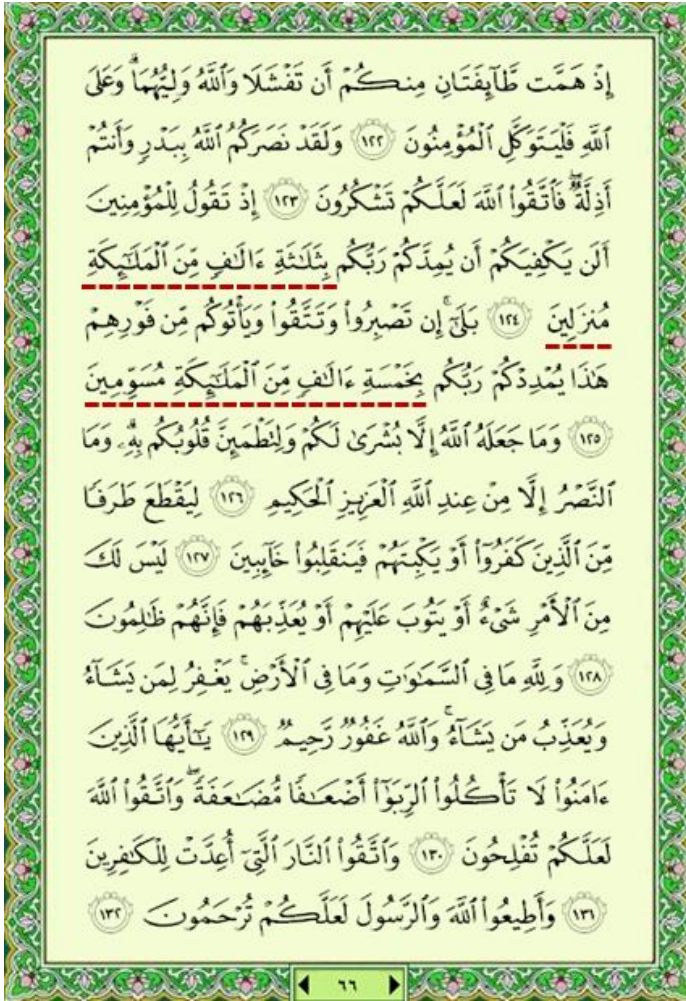 إِذْ هَمَّت طَّآئِفَتَانِ مِنكُمْ أَن تَفْشَلَا وَٱللَّهُ وَلِيُّهُمَا ۗ وَعَلَى
ٱللَّهِ فَلْيَتَوَكَّلِ ٱلْمُؤْمِنُونَ ١٢٢ وَلَقَدْ نَصَرَكُمُ ٱللَّهُ بِبَدْرٍ وَأَنتُمْ
أَذِلَّةٌ ۖ فَٱتَّقُوا۟ ٱللَّهَ لَعَلَّكُمْ تَشْكُرُونَ ١٢٣ إِذْ تَقُولُ لِلْمُؤْمِنِينَ
أَلَن يَكْفِيَكُمْ أَن يُمِدَّكُمْ رَبُّكُم بِثَلَـٰثَةِ ءَالَـٰفٍ مِّنَ ٱلْمَلَـٰٓئِكَةِ
مُنزَلِينَ ١٢٤ بَلَىٰٓ ۚ إِن تَصْبِرُوا۟ وَتَتَّقُوا۟ وَيَأْتُوكُم مِّن فَوْرِهِمْ
هَـٰذَا يُمْدِدْكُمْ رَبُّكُم بِخَمْسَةِ ءَالَـٰفٍ مِّنَ ٱلْمَلَـٰٓئِكَةِ مُسَوِّمِينَ
١٢٥ وَمَا جَعَلَهُ ٱللَّهُ إِلَّا بُشْرَىٰ لَكُمْ وَلِتَطْمَئِنَّ قُلُوبُكُم بِهِۦ ۗ وَمَا
ٱلنَّصْرُ إِلَّا مِنْ عِندِ ٱللَّهِ ٱلْعَزِيزِ ٱلْحَكِيمِ ١٢٦ لِيَقْطَعَ طَرَفًا
مِّنَ ٱلَّذِينَ كَفَرُوٓا۟ أَوْ يَكْبِتَهُمْ فَيَنقَلِبُوا۟ خَآئِبِينَ ١٢٧ لَيْسَ لَكَ
مِنَ ٱلْأَمْرِ شَىْءٌ أَوْ يَتُوبَ عَلَيْهِمْ أَوْ يُعَذِّبَهُمْ فَإِنَّهُمْ ظَـٰلِمُونَ
١٢٨ وَلِلَّهِ مَا فِى ٱلسَّمَـٰوَٰتِ وَمَا فِى ٱلْأَرْضِ ۚ يَغْفِرُ لِمَن يَشَآءُ
وَيُعَذِّبُ مَن يَشَآءُ ۚ وَٱللَّهُ غَفُورٌ رَّحِيمٌ ١٢٩ يَـٰٓأَيُّهَا ٱلَّذِينَ
ءَامَنُوا۟ لَا تَأْكُلُوا۟ ٱلرِّبَوٰٓا۟ أَضْعَـٰفًا مُّضَـٰعَفَةً ۖ وَٱتَّقُوا۟ ٱللَّهَ
لَعَلَّكُمْ تُفْلِحُونَ ١٣٠ وَٱتَّقُوا۟ ٱلنَّارَ ٱلَّتِىٓ أُعِدَّتْ لِلْكَـٰفِرِينَ
١٣١ وَأَطِيعُوا۟ ٱللَّهَ وَٱلرَّسُولَ لَعَلَّكُمْ تُرْحَمُونَ ١٣٢
٦٦